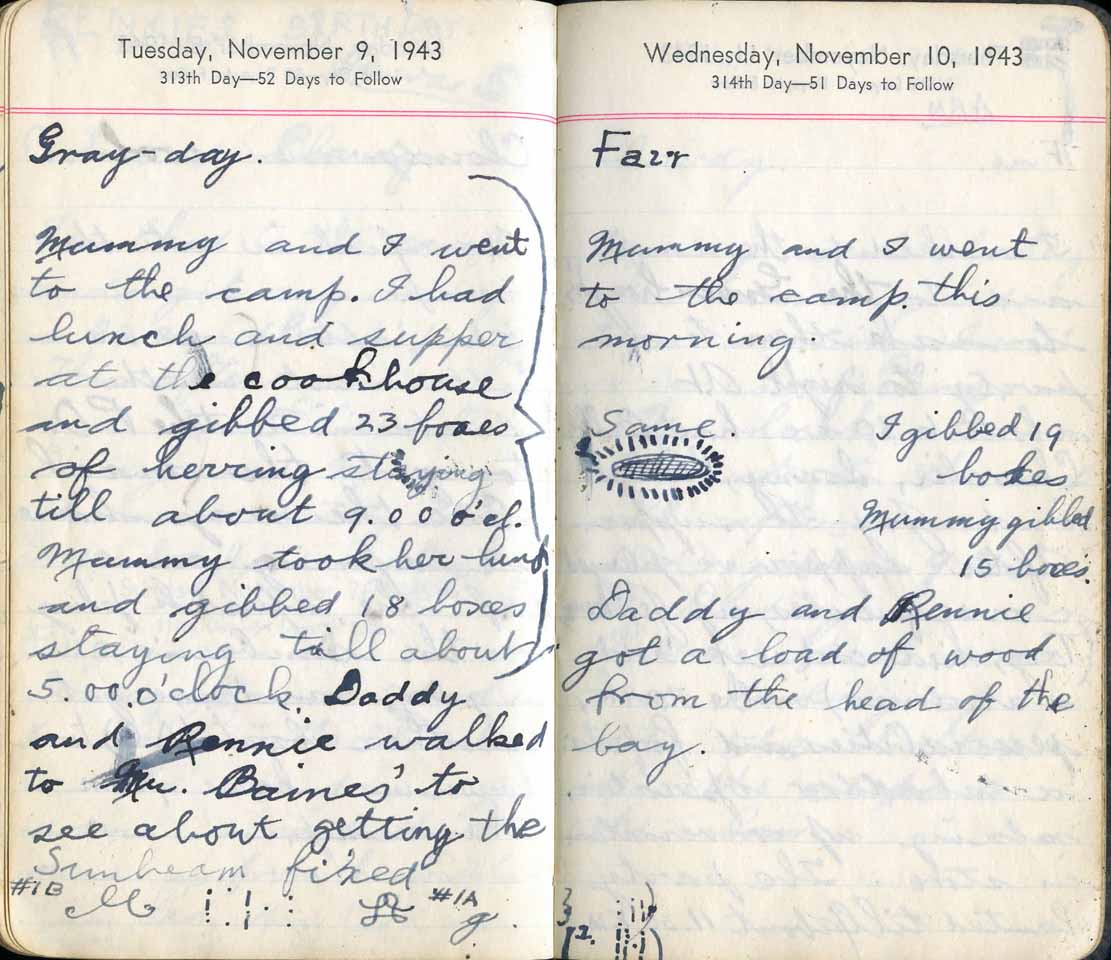 Tuesday, November 9, 1943
313th Day—52 Days to Follow
Gray-day.
Mummy and I went
to the camp. I had
lunch and supper
at the cookhouse
and gibbed 23 boxes
of herring staying
till about 9.00 o'cl.
Mummy took her lunch
and gibbed 18 boxes
staying till about
5.00 o'clock. Daddy
and Rennie walked
to Mr. Baines' to
see about getting the
Sunbeam fixed
#1B
#1A
Wednesday, November 10, 1943
314th Day—51 Days to Follow
Fair
Mummy and I went
to the camp this
morning.
Same. I gibbed 19
boxes
Mummy gibbed
15 boxes.
Daddy and Rennie
got a load of wood
from the head of the
bay.